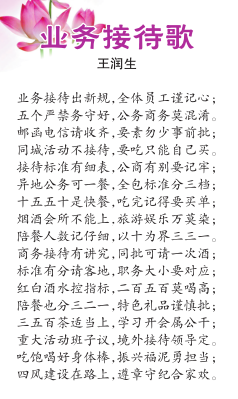 业务接待歌
王润生
业务接待出新规,全体员工谨记心;
五个严禁务守好,公务商务莫混淆。
邮函电信请收齐,要素勿少事前批;
同城活动不接待,要吃只能自己买。
接待标准有细表,公商有别要记牢;
异地公务可一餐,全包标准分三档;
十五五十是快餐,吃完记得要买单;
烟酒会所不能上,旅游娱乐万莫染;
陪餐人数记仔细,以十为界三三一。
商务接待有讲究,同批可请一次酒;
标准有分请客地,职务大小要对应;
红白酒水控指标,二百五百莫喝高;
陪餐也分三二一,特色礼品谨慎批;
三五百茶适当上,学习开会属公干;
重大活动班子议,境外接待领导定。
吃饱喝好身体棒,振兴福泥勇担当;
四风建设在路上,遵章守纪合家欢。